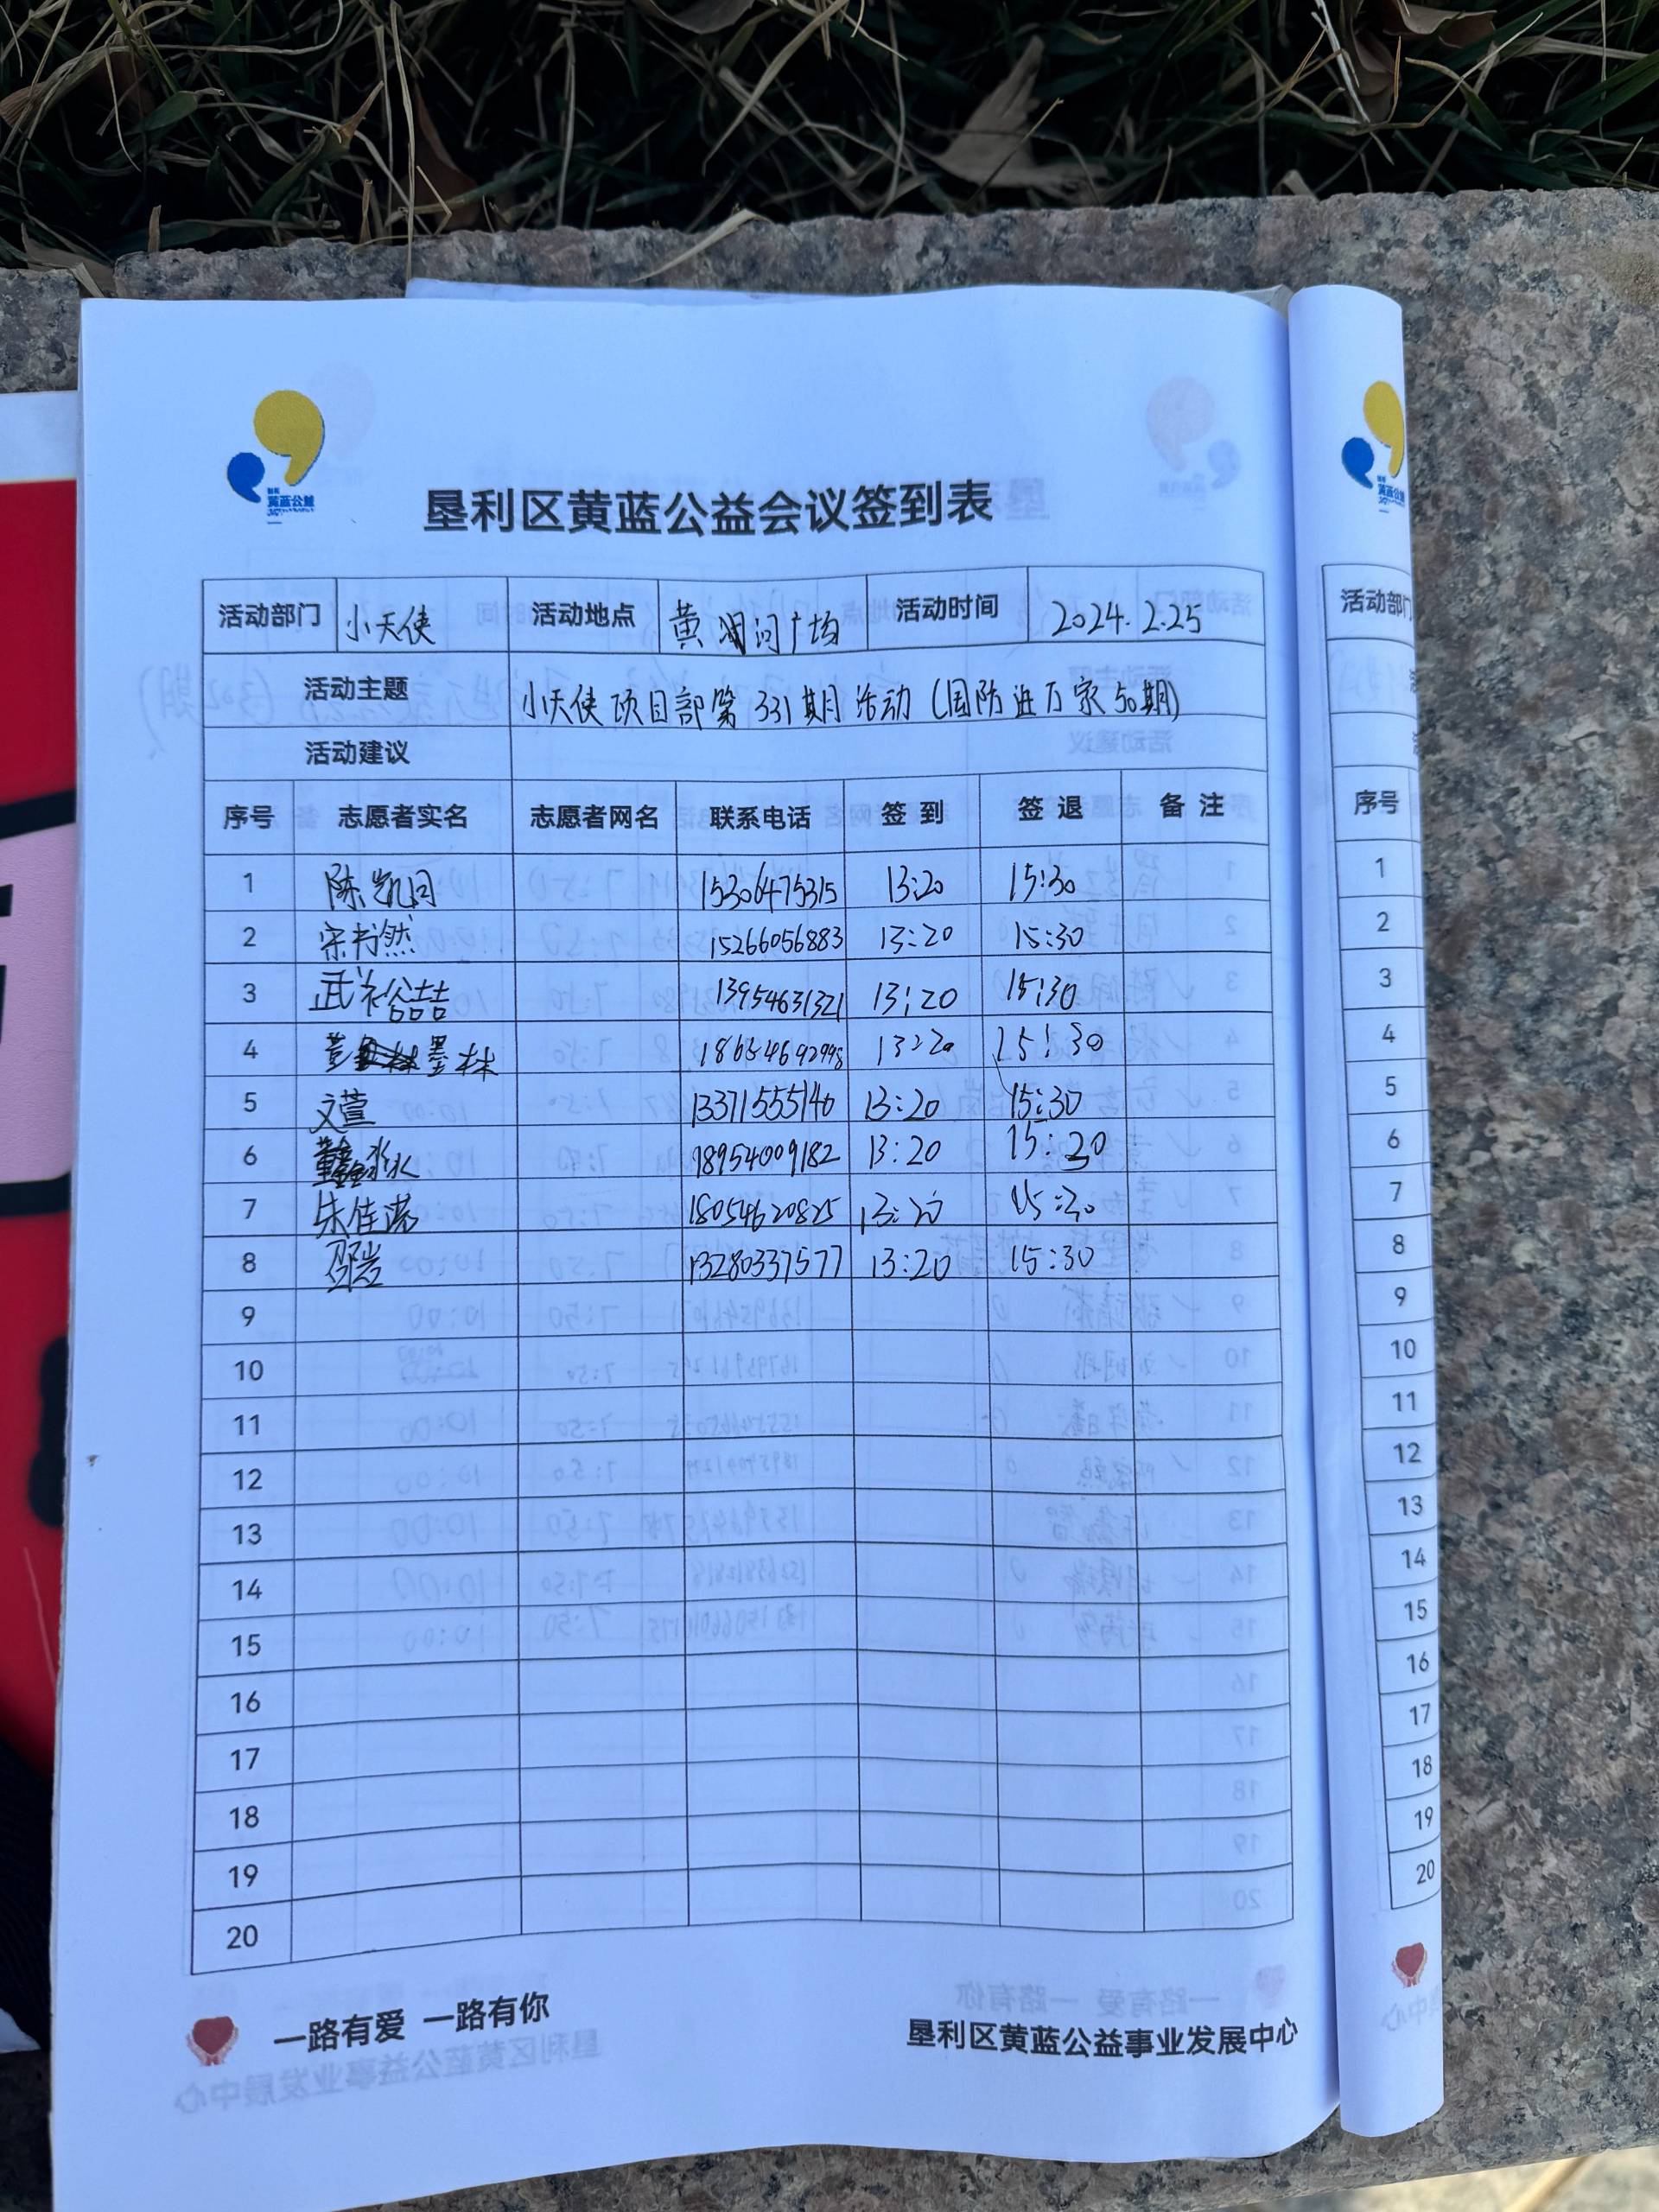 黄蓝公益
垦利区黄蓝公益会议签到表
活动部门 小天使 活动地点 黄河广场 活动时间 2024.2.25
活动主题 小天使项目部第331期活动(国防进万家50期)
活动建议
序号 志愿者实名 志愿者网名 联系电话 签到 签退 备注
1 陈凯同 15306475315 13:20 15:30
2 宋书然 15266056883 13:20 15:30
3 武裕喆 13954631321 13:20 15:30
4 墨林 18654692998 13:20 15:30
5 文萱 13371555140 13:20 15:30
6 18954009182 13:20 15:20
7 朱佳诺 18054620825 13:20 15:30
8 邵岩 13280337577 13:20 15:30
9
10
11
12
13
14
15
16
17
18
19
20
一路有爱 一路有你
垦利区黄蓝公益事业发展中心
黄蓝公益
活动部门
序号
1
2
3
4
5
6
7
8
9
10
11
12
13
14
15
16
17
18
19
20